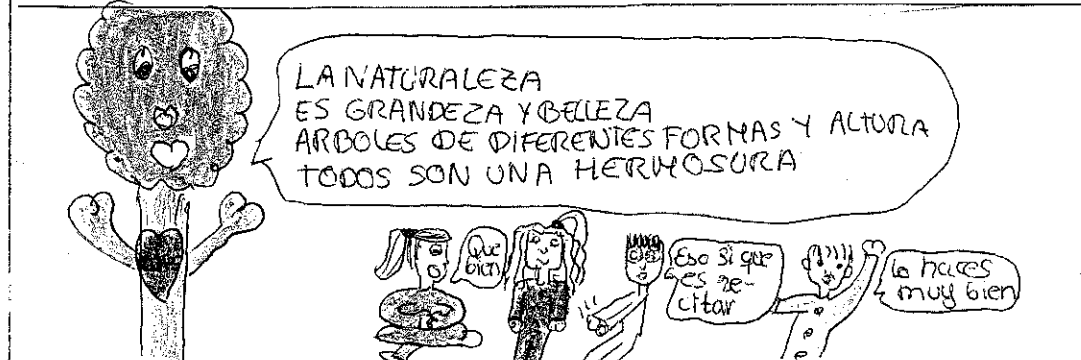 LA NATURALEZA
ES GRANDEZA Y BELLEZA
ARBOLES DE DIFERENTES FORMAS Y ALTURA
TODOS SON UNA HERMOSURA
Que
bien
Eso si que
es re-
citar
lo haces
muy bien